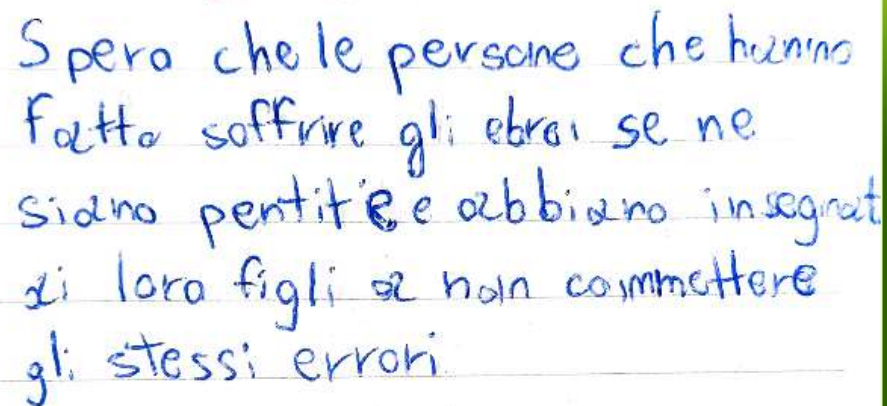 Spero che le persone che hanno
fatto soffrire gli ebrei se ne
siano pentite e abbiano insegnat
ai loro figli a non commettere
gli stessi errori